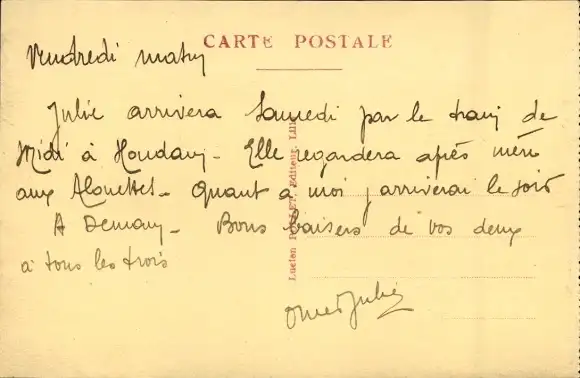 CARTE POSTALE
Vendredi matin
Julie arrivera Samedi par le train de
Midi à Houdain - Elle regardera après mère
aux Alouettes - Quant à moi j'arriverai le soir
A Demain - Bons baisers de vos deux
à tous les trois
Omer Julie
Lucien POLLET, Editeur, Lille